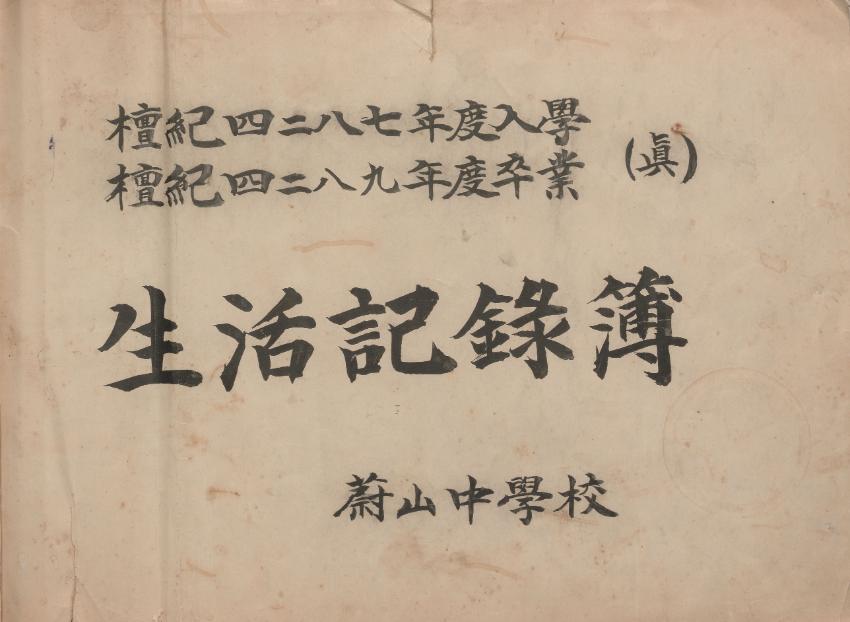 檀紀四二八七年度入學
檀紀四二八九年度卒業
(眞)
生活記錄簿
蔚山中學校